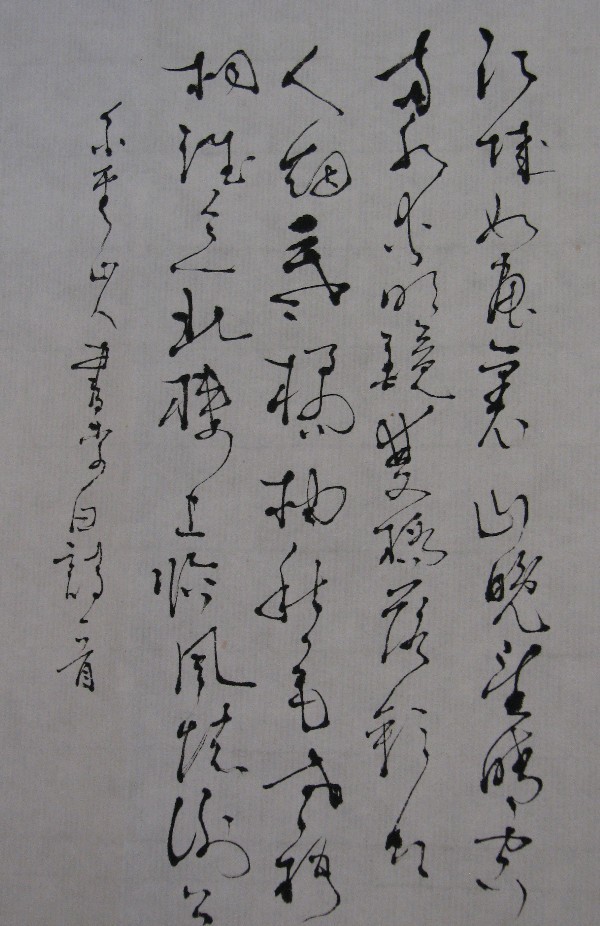 江城如畫裏山晚望晴空
兩水夾明鏡雙橋落彩虹
人烟寒橘柚秋色老梧
桐誰念北樓上臨風懷謝公
山人書李白詩一首